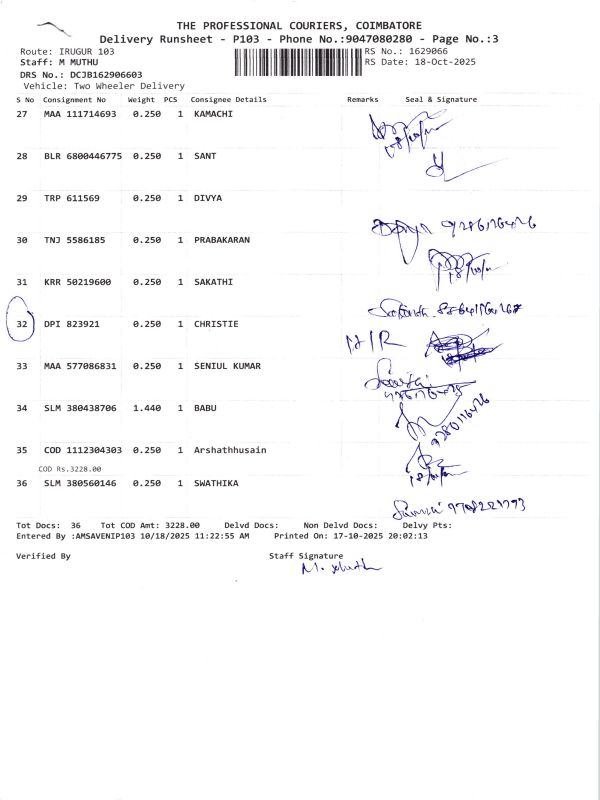 THE PROFESSIONAL COURIERS, COIMBATORE
Delivery Runsheet - P103 - Phone No.:9047080280 - Page No.:3
Route: IRUGUR 103 RS No.: 1629066
Staff: M MUTHU RS Date: 18-Oct-2025
DRS No.: DCJB162906603
Vehicle: Two Wheeler Delivery
S No Consignment No Weight PCS Consignee Details Remarks Seal & Signature
27 MAA 111714693 0.250 1 KAMACHI
28 BLR 6800446775 0.250 1 SANT
29 TRP 611569 0.250 1 DIVYA
30 TNJ 5586185 0.250 1 PRABAKARAN
31 KRR 50219600 0.250 1 SAKATHI
32 DPI 823921 0.250 1 CHRISTIE
33 MAA 577086831 0.250 1 SENIUL KUMAR
34 SLM 380438706 1.440 1 BABU
35 COD 1112304303 0.250 1 Arshathhusain
COD Rs.3228.00
36 SLM 380560146 0.250 1 SWATHIKA
Tot Docs: 36 Tot COD Amt: 3228.00 Delvd Docs: Non Delvd Docs: Delvy Pts:
Entered By :AMSAVENIP103 10/18/2025 11:22:55 AM Printed On: 17-10-2025 20:02:13
Verified By Staff Signature